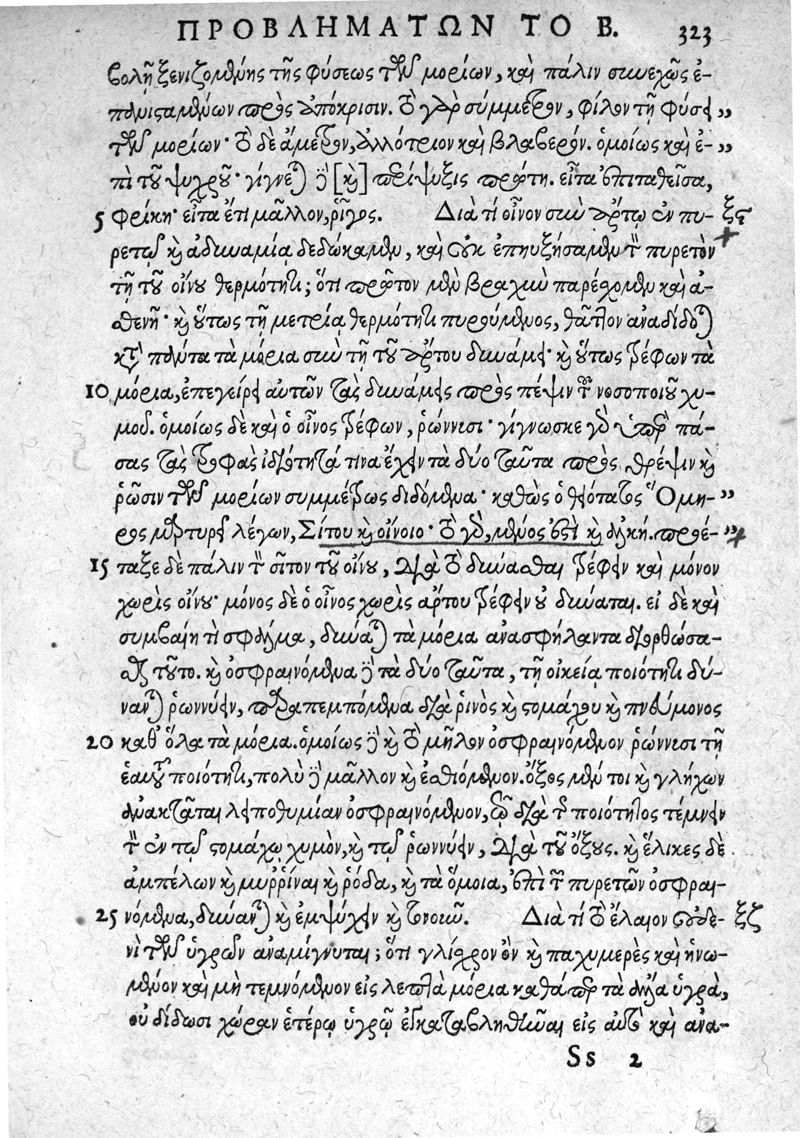 ΠΡΟΒΛΗΜΑΤΩΝ ΤΟ Β. 323
βολῇ ξενιζομένης τῆς φύσεως τῶν μορίων, καὶ πάλιν συνεχῶς ἐ-
πανισταμένων πρὸς ἀπόκρισιν. τὸ γὰρ σύμμετρον, φίλον τῇ φύσει „
τῶν μορίων· τὸ δὲ ἄμετρον, ἀλλότριον καὶ βλαβερόν. ὁμοίως καὶ ἐ- „
πὶ τοῦ ψυχροῦ· γίγνεται γὰρ [καὶ] περίψυξις πρώτη. εἶτα ἐπιταθεῖσα,
5 φρίκη· εἶτα ἔτι μᾶλλον, ῥῖγος. Διὰ τί οἶνον σὺν ἄρτῳ ἐν πυ- ξϛ
ρετῷ καὶ ἀδυναμίᾳ δεδώκαμεν, καὶ οὐκ ἐπηυξήσαμεν τὸν πυρετὸν
τῇ τοῦ οἴνου θερμότητι; ὅτι πρῶτον μὲν βραχὺ παρέσχομεν καὶ ἀ-
σθενῆ· καὶ οὕτως τῇ μετρίᾳ θερμότητι πυρούμενος, θᾶττον ἀναδίδοται
κατὰ πολύτα τὰ μόρια σὺν τῇ τοῦ ἄρτου δυνάμει· καὶ οὕτως τρέφων τὰ
10 μόρια, ἐπεγείρει αὐτῶν τὰς δυνάμεις πρὸς πέψιν τοῦ νοσοποιοῦ χυ-
μοῦ. ὁμοίως δὲ καὶ ὁ οἶνος τρέφων, ῥώννισι· γίγνωσκε γὰρ ὑπὲρ πά-
σας τὰς τροφὰς ἰδιότητά τινα ἔχειν τὰ δύο ταῦτα πρὸς θρέψιν καὶ
ῥῶσιν τῶν μορίων συμμέτρως διδόμενα· καθὼς ὁ θειότατος Ὅμη- „
ρος μαρτυρεῖ λέγων, Σίτου καὶ οἴνοιο· τὸ γὰρ, μένος ἐστὶ καὶ ἀλκή. προέ- „
15 ταξε δὲ πάλιν τὸν σῖτον τοῦ οἴνου, διὰ τὸ δύνασθαι τρέφειν καὶ μόνον
χωρὶς οἴνου· μόνος δὲ ὁ οἶνος χωρὶς ἄρτου τρέφειν οὐ δύναται. εἰ δὲ καὶ
συμβαίη τὶ σφάλμα, δύναται τὰ μόρια ἀνασφήλαντα διορθώσα-
σθαι τοῦτο. καὶ ὀσφραινόμενα γὰρ τὰ δύο ταῦτα, τῇ οἰκείᾳ ποιότητι δύ-
νανται ῥωννύειν, παραπεμπόμενα διὰ ῥινὸς καὶ στομάχου καὶ πνεύμονος
20 καθ' ὅλα τὰ μόρια. ὁμοίως γὰρ καὶ τὸ μῆλον ὀσφραινόμενον ῥώννισι τῇ
ἑαυτοῦ ποιότητι, πολὺ γὰρ μᾶλλον καὶ ἐσθιόμενον. ὄξος μέν τοι καὶ γλήχων
ἀνακτᾶται λειποθυμίαν ὀσφραινόμενον, τῷ διὰ τῆς ποιότητος τέμνειν
τὸν ἐν τῷ στομάχῳ χυμὸν, καὶ τῷ ῥωννύειν, διὰ τοῦ ὄξους. καὶ ἕλικες δὲ
ἀμπέλων καὶ μυρρίναι καὶ ῥόδα, καὶ τὰ ὅμοια, ἐπὶ τῶν πυρετῶν ὀσφραι-
25 νόμενα, δύνανται καὶ ἐμψύχειν καὶ τονοῦν. Διὰ τί τὸ ἔλαιον οὐδε- ξζ
νὶ τῶν ὑγρῶν ἀναμίγνυται; ὅτι γλίσχρον ὂν καὶ παχυμερὲς καὶ ἡνω-
μένον καὶ μὴ τεμνόμενον εἰς λεπτὰ μόρια καθάπερ τὰ ἄλλα ὑγρὰ,
οὐ δίδωσι χώραν ἑτέρῳ ὑγρῷ ἐγκαταβληθῆναι εἰς αὐτὸ καὶ ἀνα-
Ss 2